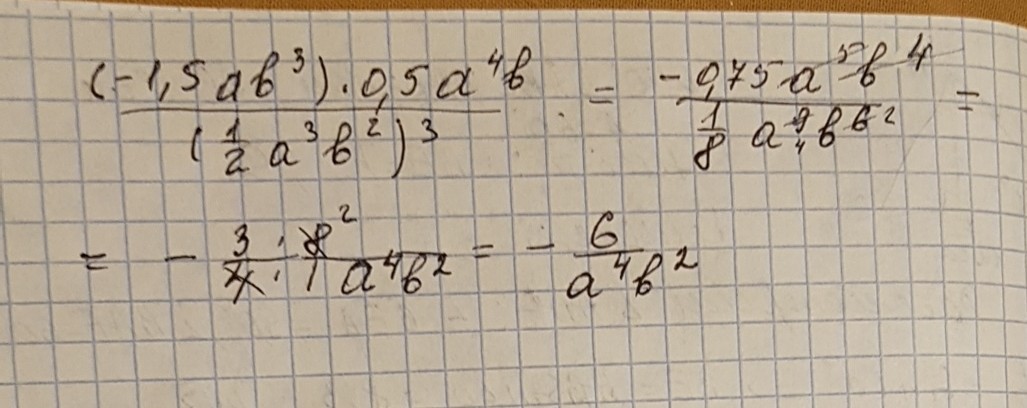 (-1,5ab³)·0,5a⁴b / (1/2 a³b²)³ = -0,75a⁵b⁴ / (1/8 a⁹₄b⁶ ²) =
= - 3/4 · 8² / 1a⁴b² = - 6 / a⁴b²